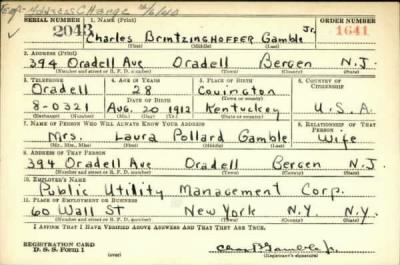 Address Change
SERIAL NUMBER 1. NAME (Print) ORDER NUMBER
2043 Charles Brntzinghoffer Gamble Jr. 1641
(First) (Middle) (Last)
2. ADDRESS (Print)
394 Oradell Ave Oradell Bergen N.J.
(Number and street or R. F. D. number) (Town) (County) (State)
3. TELEPHONE 4. AGE IN YEARS 5. PLACE OF BIRTH 6. COUNTRY OF CITIZENSHIP
Oradell 28 Covington
DATE OF BIRTH (Town or county)
8-0321 Aug. 20 1912 Kentuckey U.S.A.
(Exchange) (Number) (Mo.) (Day) (Yr.) (State or country)
7. NAME OF PERSON WHO WILL ALWAYS KNOW YOUR ADDRESS 8. RELATIONSHIP OF THAT PERSON
Mrs. Laura Pollard Gamble Wife
(Mr., Mrs., Miss) (First) (Middle) (Last)
9. ADDRESS OF THAT PERSON
394 Oradell Ave Oradell Bergen N.J.
(Number and street or R. F. D. number) (Town) (County) (State)
10. EMPLOYER'S NAME
Public Utility Management Corp.
11. PLACE OF EMPLOYMENT OR BUSINESS
60 Wall St New York N.Y. N.Y.
(Number and street or R. F. D. number) (Town) (County) (State)
I AFFIRM THAT I HAVE VERIFIED ABOVE ANSWERS AND THAT THEY ARE TRUE.
REGISTRATION CARD
D. S. S. Form 1 Chas B Gamble Jr.
(Registrant's signature)